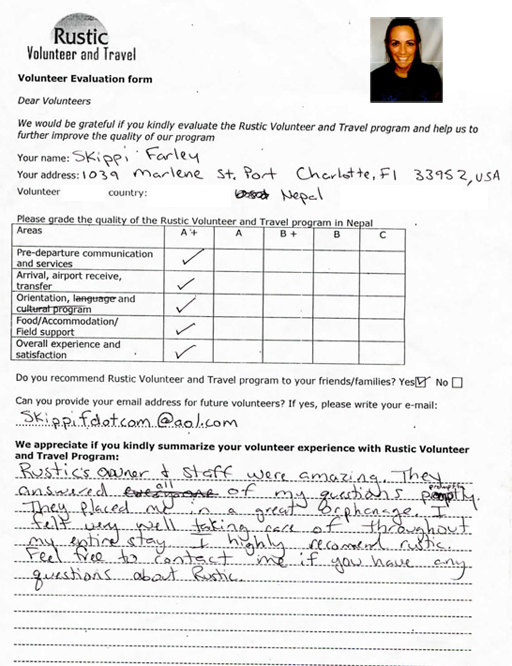 Rustic
Volunteer and Travel
Volunteer Evaluation form
Dear Volunteers
We would be grateful if you kindly evaluate the Rustic Volunteer and Travel program and help us to
further improve the quality of our program
Your name: Skippi Farley
Your address: 1039 Marlene St. Port Charlotte, Fl 33952, USA
Volunteer country: Nepal
Please grade the quality of the Rustic Volunteer and Travel program in Nepal
Areas A+ A B+ B C
Pre-departure communication
and services ✓
Arrival, airport receive,
transfer ✓
Orientation, language and
cultural program ✓
Food/Accommodation/
Field support ✓
Overall experience and
satisfaction ✓
Do you recommend Rustic Volunteer and Travel program to your friends/families? Yes ☑ No ☐
Can you provide your email address for future volunteers? If yes, please write your e-mail:
Skippifdotcom@aol.com
We appreciate if you kindly summarize your volunteer experience with Rustic Volunteer
and Travel Program:
Rustic's owner & staff were amazing. They
answered all of my questions promptly.
They placed me in a great orphanage. I
felt very well taking care of throughout
my entire stay. I highly recomend rustic.
Feel free to contact me if you have any
questions about Rustic.